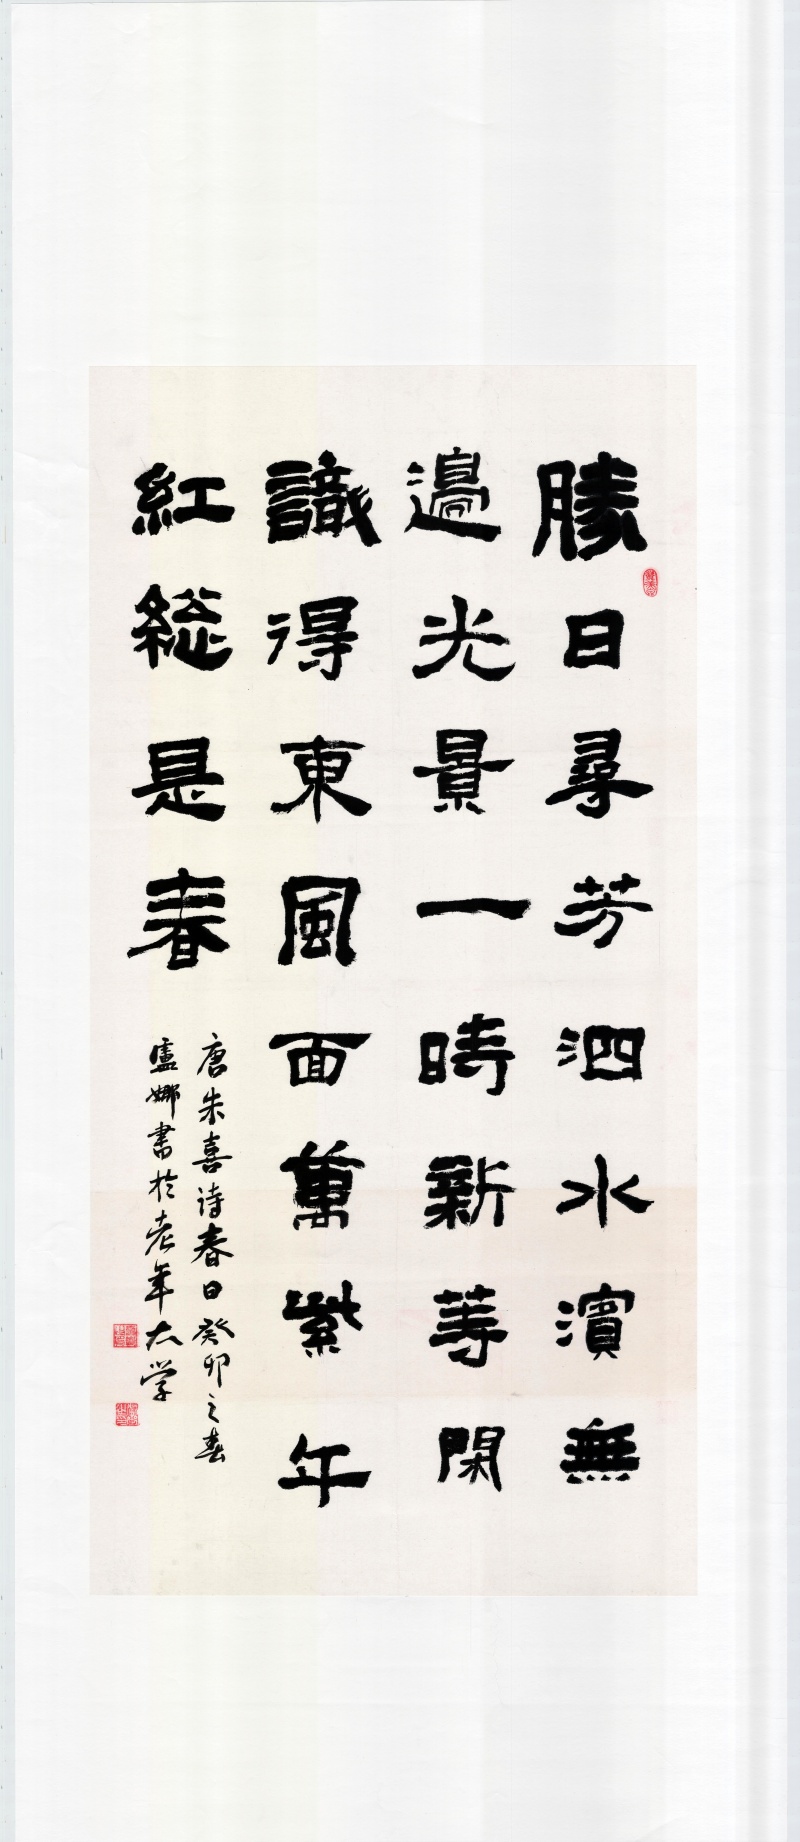 勝日尋芳泗水濱無
邊光景一時新等閑
識得東風面萬紫年
紅総是春
唐朱喜诗春日癸卯之春
盧娜書於老年大学